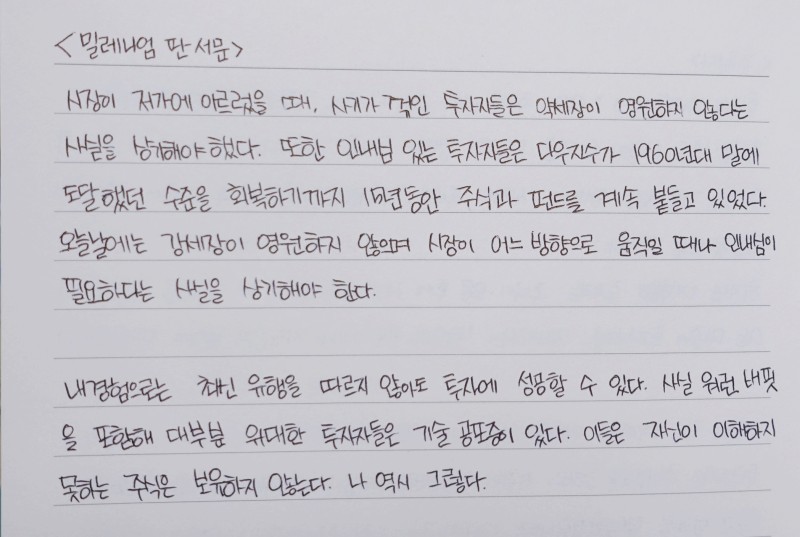 <밀레니엄 판 서문>
시장이 저가에 이르렀을 때, 사기가 꺾인 투자자들은 약세장이 영원하지 않다는
사실을 상기해야 했다. 또한 인내심 있는 투자자들은 다우지수가 1960년대 말에
도달했던 수준을 회복하기까지 15년동안 주식과 펀드를 계속 붙들고 있었다.
오늘날에는 강세장이 영원하지 않으며 시장이 어느 방향으로 움직일 때나 인내심이
필요하다는 사실을 상기해야 한다.
내 경험으로는 최신 유행을 따르지 않아도 투자에 성공할 수 있다. 사실 워런 버핏
을 포함해 대부분 위대한 투자자들은 기술 공포증이 있다. 이들은 자신이 이해하지
못하는 주식은 보유하지 않는다. 나 역시 그렇다.